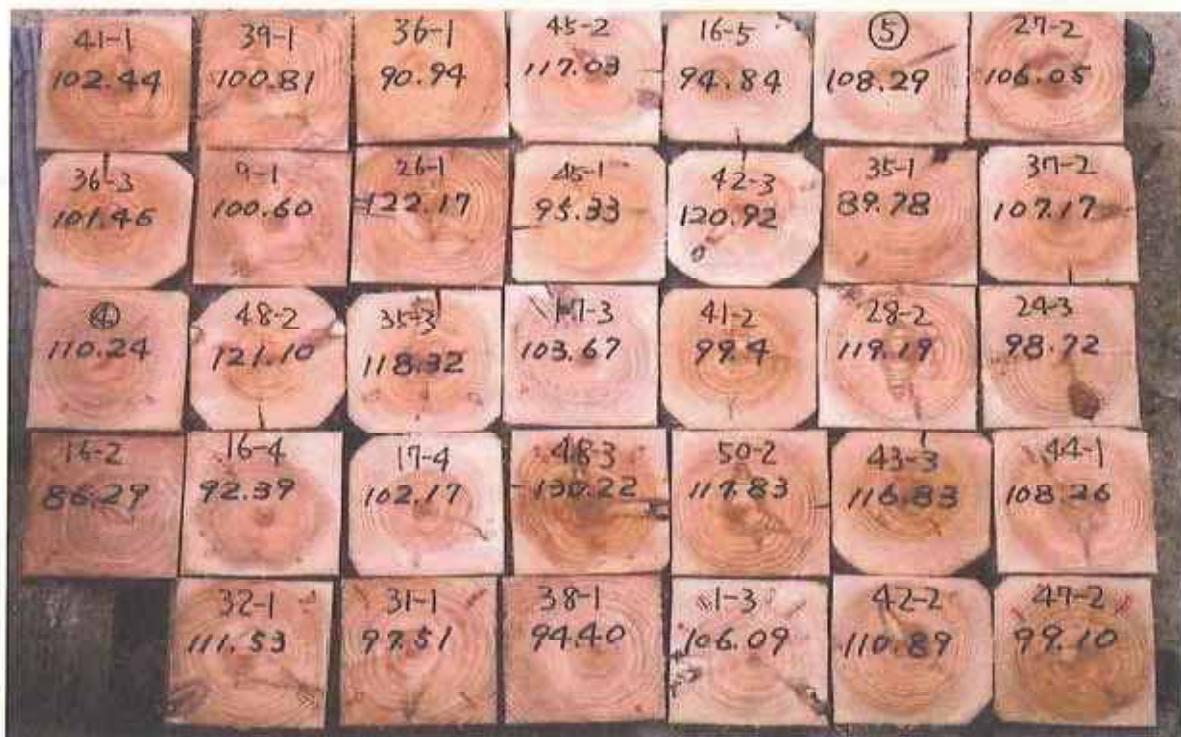 41-1
102.44
39-1
100.81
36-1
90.94
45-2
117.03
16-5
94.84
⑤
108.29
27-2
106.05
36-3
101.46
9-1
100.60
26-1
122.17
45-1
95.33
42-3
120.92
35-1
89.78
37-2
107.17
④
110.24
48-2
121.10
35-3
118.32
17-3
103.67
41-2
99.4
28-2
119.19
24-3
98.72
16-2
86.29
16-4
92.39
17-4
102.17
48-3
130.22
50-2
117.83
43-3
116.83
44-1
108.26
32-1
111.53
31-1
97.51
38-1
94.40
1-3
106.09
42-2
110.89
47-2
99.10